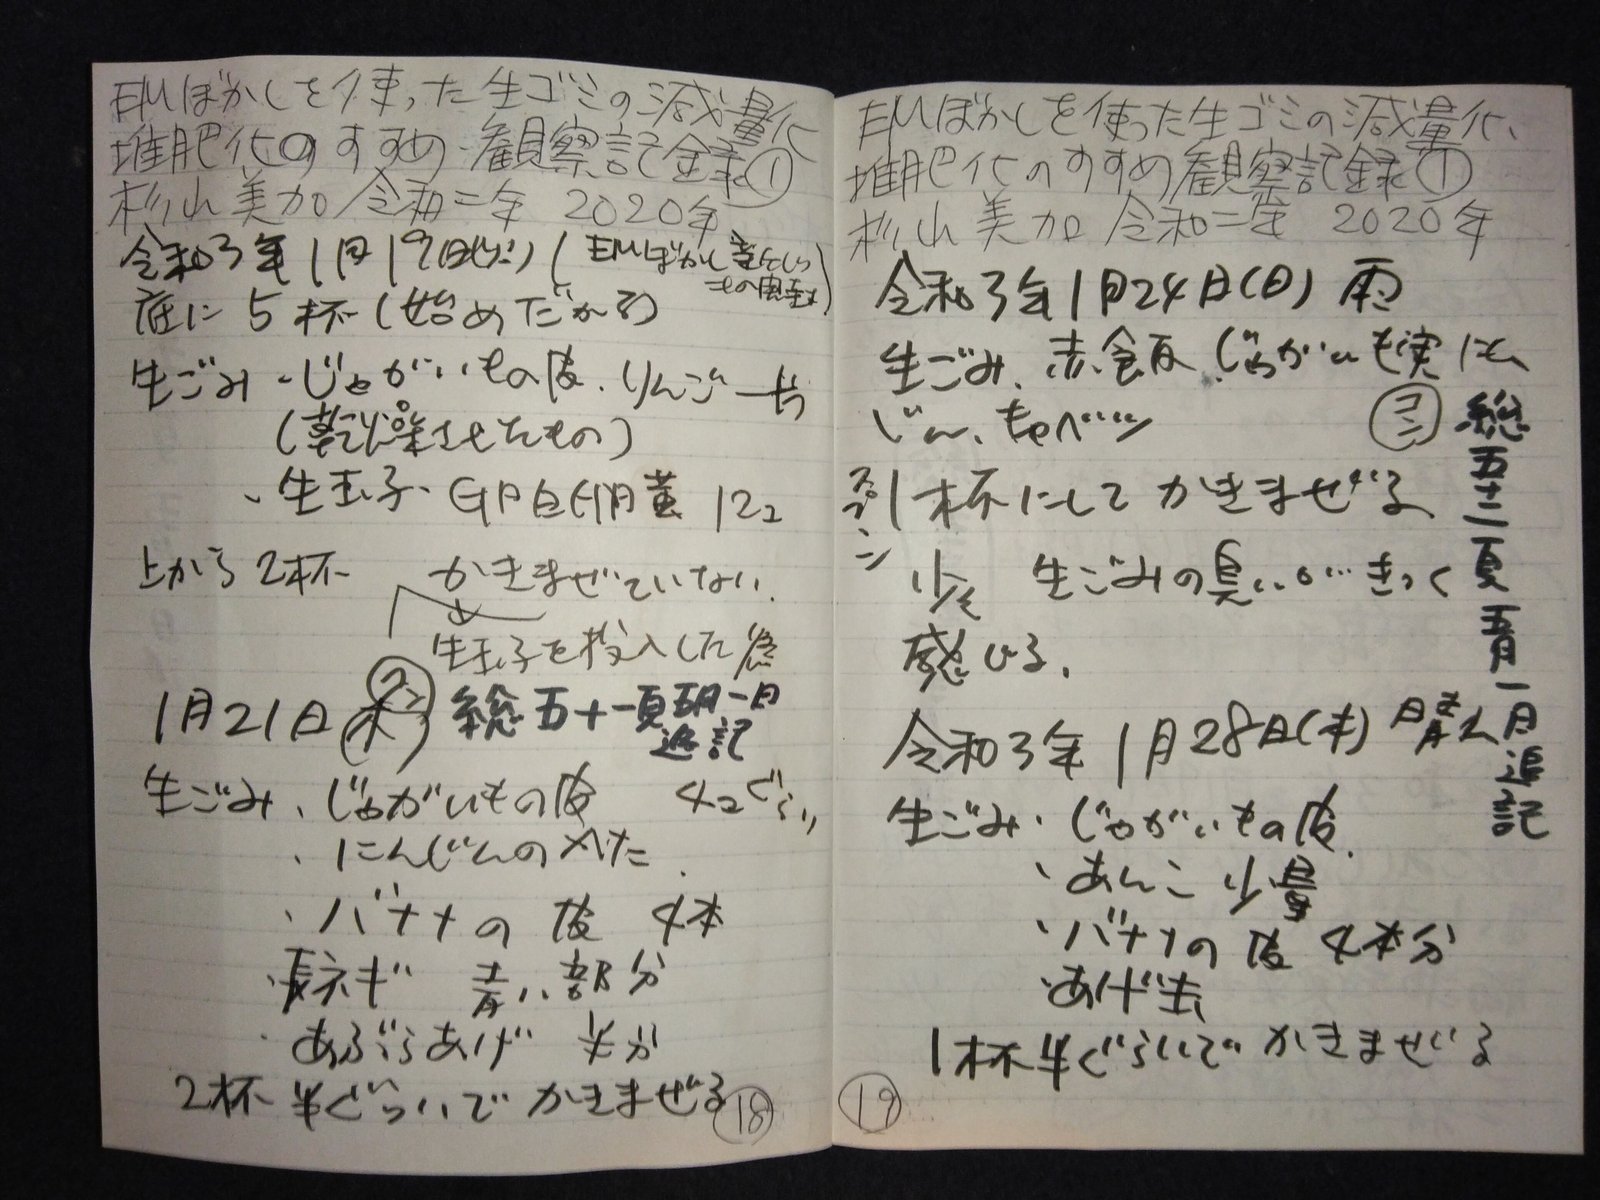 EMぼかしを使った生ゴミの減量化
堆肥化のすすめ 観察記録①
杉山美加 令和二年 2020年
令和3年1月19日(火)(EMぼかし
底に5杯(始めだから)
生ごみ・じゃがいもの皮、りんご
(乾燥させたもの)
・生玉子・卵白卵黄 1コ
上から2杯 かきまぜていない
生玉子を投入した為
1月21日(木) コン 総五十一頁五月一日
追記
生ごみ、じゃがいもの皮 4コぐらい
・にんじんのへた
・バナナの皮 4本
・長ネギ 青い部分
・あぶらあげ 半分
2杯半ぐらいでかきまぜる
⑱
EMぼかしを使った生ゴミの減量化、
堆肥化のすすめ観察記録①
杉山美加 令和二年 2020年
令和3年1月24日(日) 雨
生ごみ、赤飯、じゃがいも実 にん
じん、キャベツ
スプーン1杯にしてかきまぜる
少々 生ごみの臭いがきつく
感じる、
コン
総五十二頁五月一日追記
令和3年1月28日(木) 晴れ
生ごみ・じゃがいもの皮
・あんこ 少量
・バナナの皮 4本分
・あげ玉
1杯半ぐらいでかきまぜる
⑲